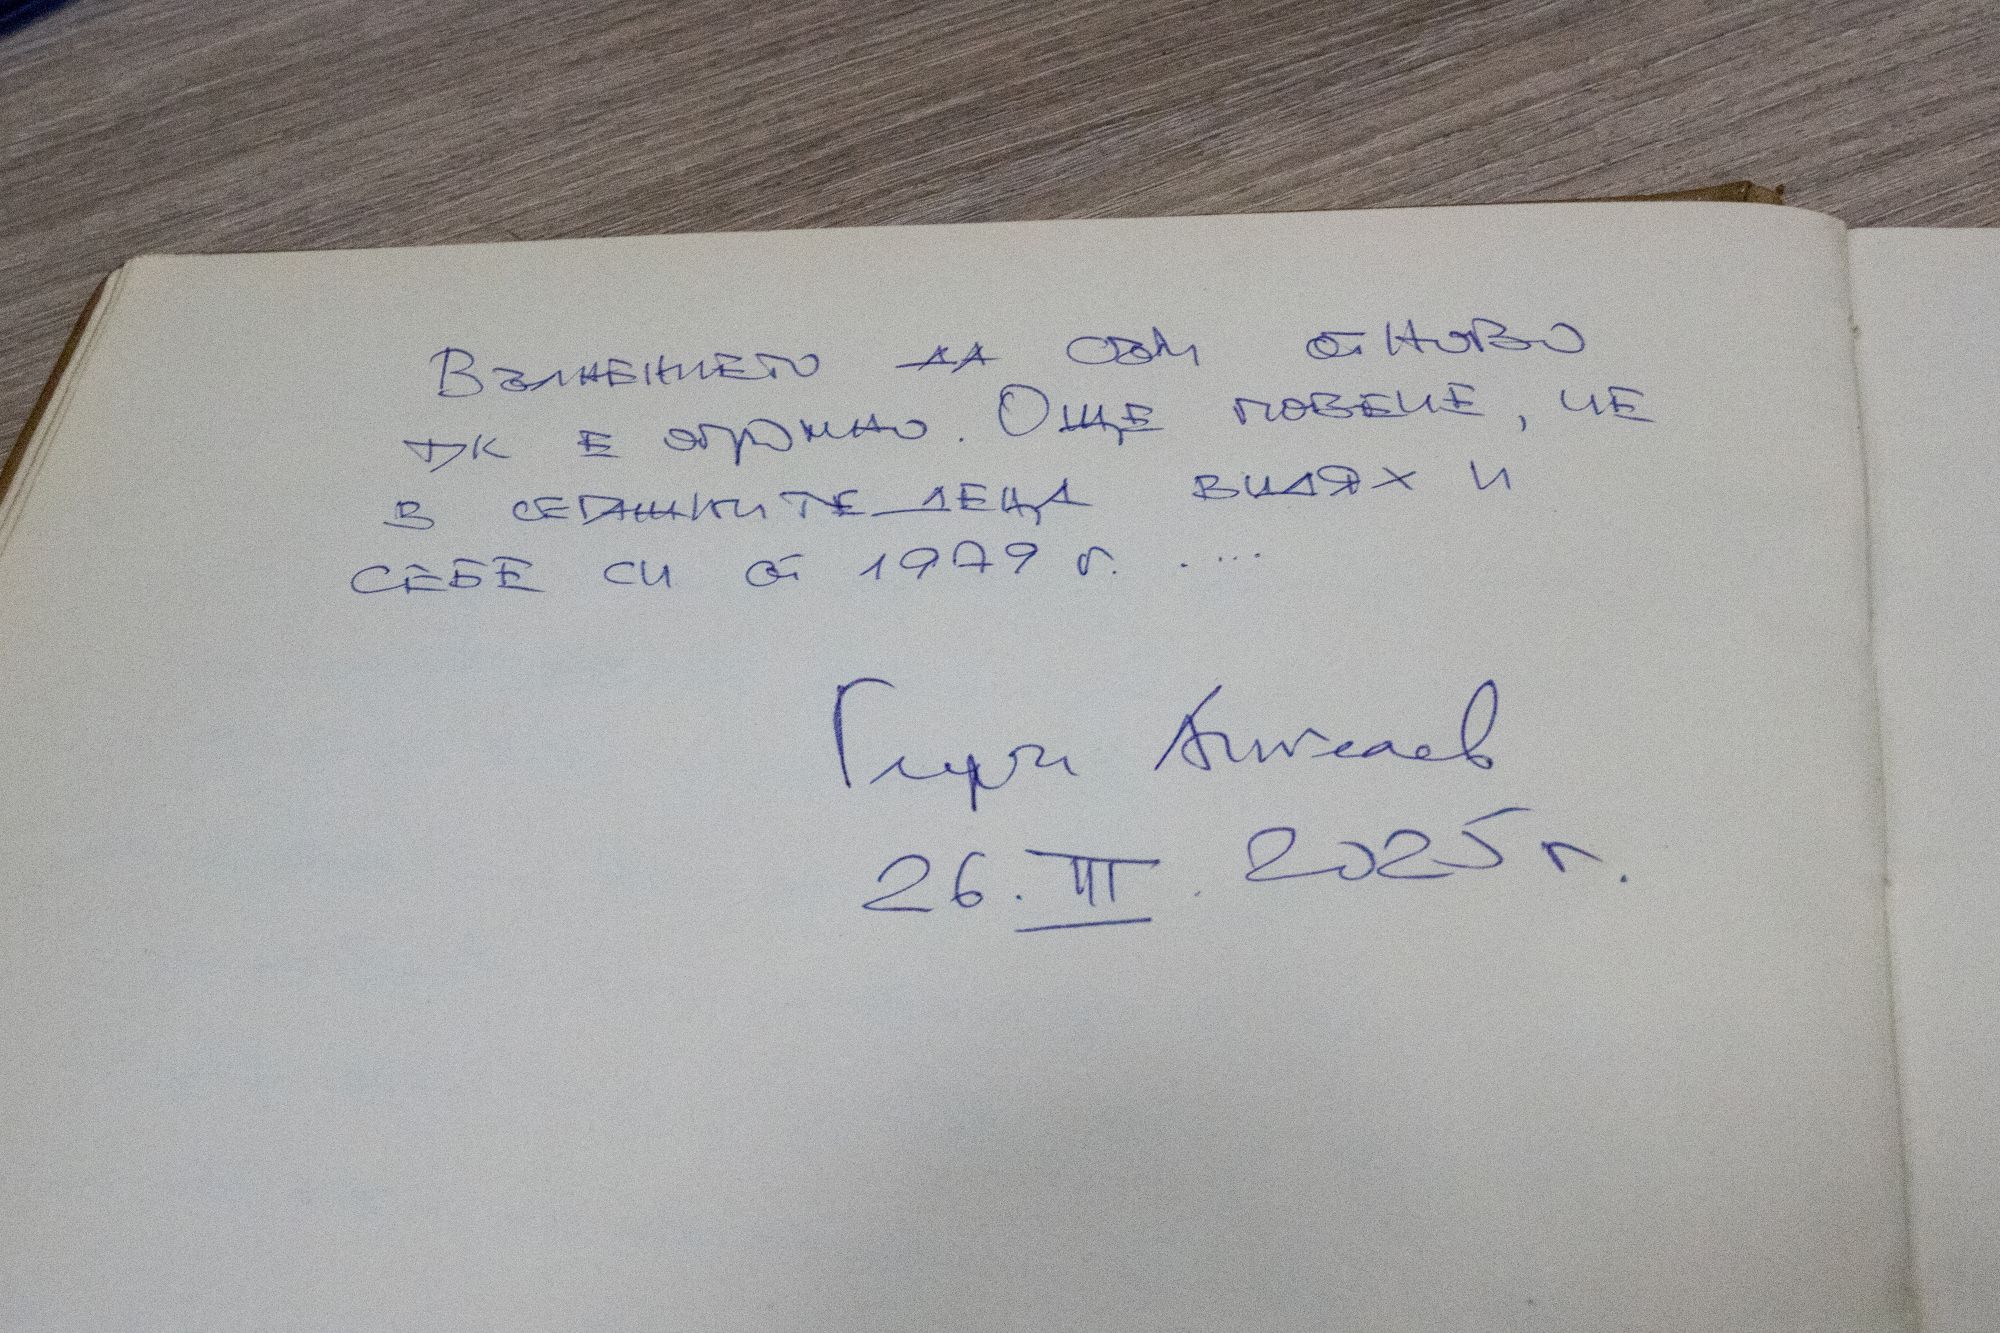 Вълнението да съм отново
тук е огромно. Още повече, че
в сегашните деца видях и
себе си от 1979 г. ....
Георги Ангелов
26. III. 2025 г.